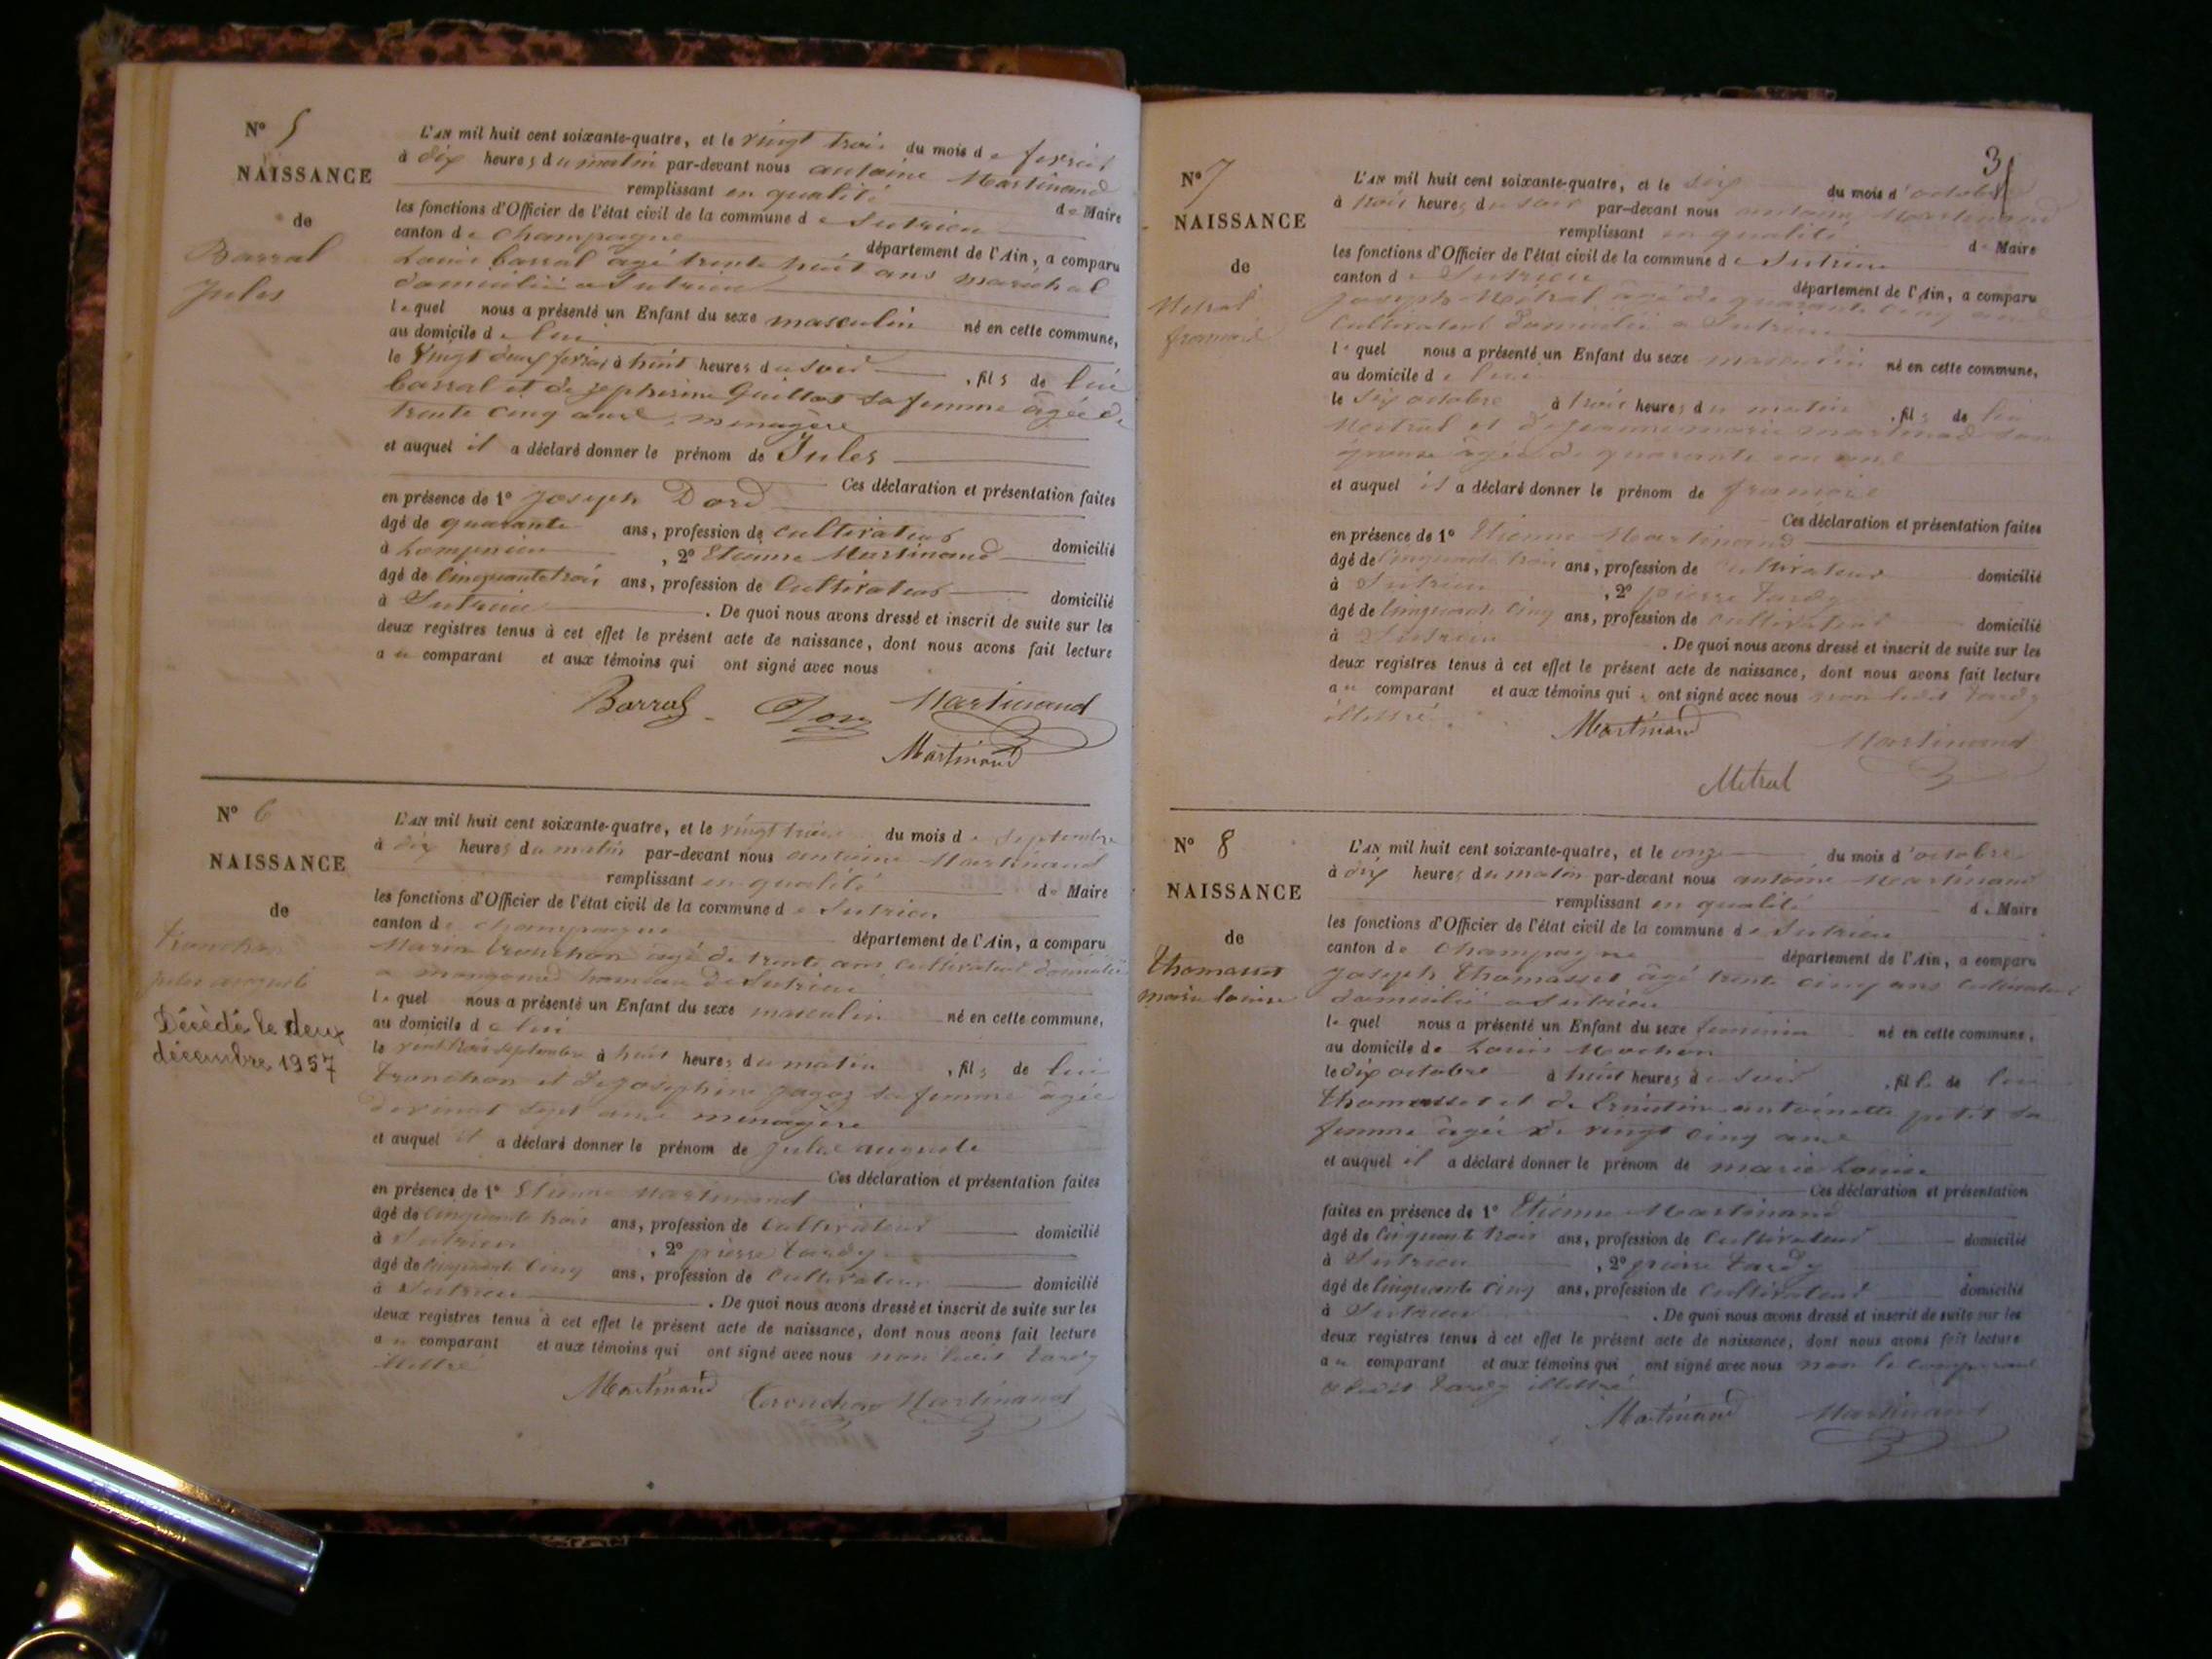 N° 5
NAISSANCE
de
Barral
Jules
L'AN mil huit cent soixante-quatre, et le vingt trois du mois de
à dix heures du matin par-devant nous antoine Martinand
remplissant en qualité de Maire
les fonctions d'Officier de l'état civil de la commune de Sutrieu
canton de Champagne département de l'Ain, a comparu
Louis barral agé trente huit ans maréchal
domicilié a Sutrieu
lequel nous a présenté un Enfant du sexe masculin né en cette commune,
au domicile de lui
le Vingt deux à huit heures du soir, fils de lui
barral et de Guillot sa femme âgée de
trente cinq ans, menagère
et auquel il a déclaré donner le prénom de Jules
Ces déclaration et présentation faites
en présence de 1° Joseph Dord
âgé de quarante ans, profession de cultivateur domicilié
à , 2° Etienne Martinand
âgé de Cinquante trois ans, profession de Cultivateur domicilié
à Sutrieu. De quoi nous avons dressé et inscrit de suite sur les
deux registres tenus à cet effet le présent acte de naissance, dont nous avons fait lecture
au comparant et aux témoins qui ont signé avec nous
Barral Martinand
Martinand
N° 6
NAISSANCE
de
Tronchon
jules auguste
Décédé le deux
décembre 1957
L'AN mil huit cent soixante-quatre, et le vingt trois du mois de Septembre
à dix heures du matin par-devant nous antoine Martinand
remplissant en qualité de Maire
les fonctions d'Officier de l'état civil de la commune de Sutrieu
canton de Champagne département de l'Ain, a comparu
Tronchon agé de trente ans Cultivateur domicilié
a hameau de Sutrieu
lequel nous a présenté un Enfant du sexe masculin né en cette commune,
au domicile de lui
le vent trois septembre à huit heures du matin, fils de lui
tronchon et de Joséphine sa femme âgée
de vingt sept ans menagère
et auquel il a déclaré donner le prénom de jules auguste
Ces déclaration et présentation faites
en présence de 1° Etienne Martinand
âgé de Cinquante trois ans, profession de Cultivateur domicilié
à Sutrieu, 2° pierre tardy
âgé de Cinquante Cinq ans, profession de Cultivateur domicilié
à Sutrieu. De quoi nous avons dressé et inscrit de suite sur les
deux registres tenus à cet effet le présent acte de naissance, dont nous avons fait lecture
au comparant et aux témoins qui ont signé avec nous non ledit tardy
illettré
Martinand Tronchon Martinand
3
N° 7
NAISSANCE
de
Metral
L'AN mil huit cent soixante-quatre, et le six du mois d'octobre
à trois heures du soir par-devant nous antoine Martinand
remplissant en qualité de Maire
les fonctions d'Officier de l'état civil de la commune de Sutrieu
canton de Sutrieu département de l'Ain, a comparu
Joseph Metral âgé de quarante cinq ans
Cultivateur domicilié a Sutrieu
lequel nous a présenté un Enfant du sexe masculin né en cette commune,
au domicile de lui
le six octobre à trois heures du matin, fils de lui
Metral et de jeanne marie martinand son
épouse âgée de quarante un ans
et auquel il a déclaré donner le prénom de
Ces déclaration et présentation faites
en présence de 1° Etienne Martinand
âgé de Cinquante trois ans, profession de Cultivateur domicilié
à Sutrieu, 2° pierre tardy
âgé de Cinquante Cinq ans, profession de Cultivateur domicilié
à Sutrieu. De quoi nous avons dressé et inscrit de suite sur les
deux registres tenus à cet effet le présent acte de naissance, dont nous avons fait lecture
au comparant et aux témoins qui ont signé avec nous non ledit tardy
illettré
Martinand Martinand
Metral
N° 8
NAISSANCE
de
Thomasset
marie louise
L'AN mil huit cent soixante-quatre, et le onze du mois d'octobre
à dix heures du matin par-devant nous antoine Martinand
remplissant en qualité de Maire
les fonctions d'Officier de l'état civil de la commune de Sutrieu
canton de Champagne département de l'Ain, a comparu
joseph Thomasset âgé trente cinq ans Cultivateur
domicilié a Sutrieu
lequel nous a présenté un Enfant du sexe feminin né en cette commune,
au domicile de Louis
le dix octobre à huit heures du soir, fille de lui
Thomasset et de Ernestine antoinette petit sa
femme âgée de vingt cinq ans
et auquel il a déclaré donner le prénom de marie Louise
Ces déclaration et présentation
faites en présence de 1° Etienne Martinand
âgé de Cinquante trois ans, profession de Cultivateur domicilié
à Sutrieu, 2° pierre tardy
âgé de Cinquante Cinq ans, profession de Cultivateur domicilié
à Sutrieu. De quoi nous avons dressé et inscrit de suite sur les
deux registres tenus à cet effet le présent acte de naissance, dont nous avons fait lecture
au comparant et aux témoins qui ont signé avec nous non le comparant
& ledit tardy illettré
Martinand Martinand